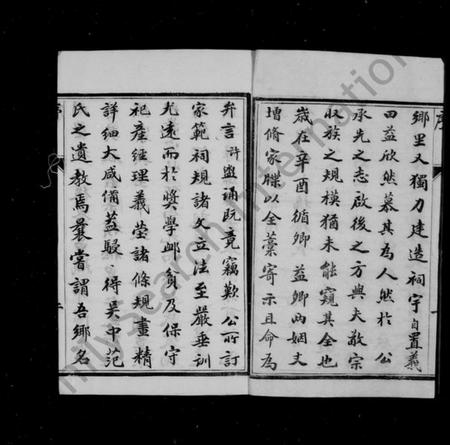 鄉里又獨力建造祠宇自置義
田益欣然慕其為人然於 公
承先之志啟後之方與夫敬宗
收族之規模猶未能窺其全也
歲在辛酉循卿 益卿兩姻丈
增修家牒以全藁寄示且命為
弁言許盥誦既竟竊歎 公所訂
家範祠規諸文立法至嚴垂訓
尤遠而於奬學卹貧及保守
祀產經理義塋諸條規畫精
詳細大咸備蓋駸 得吳中范
氏之遺教焉曩嘗謂吾鄉名
序